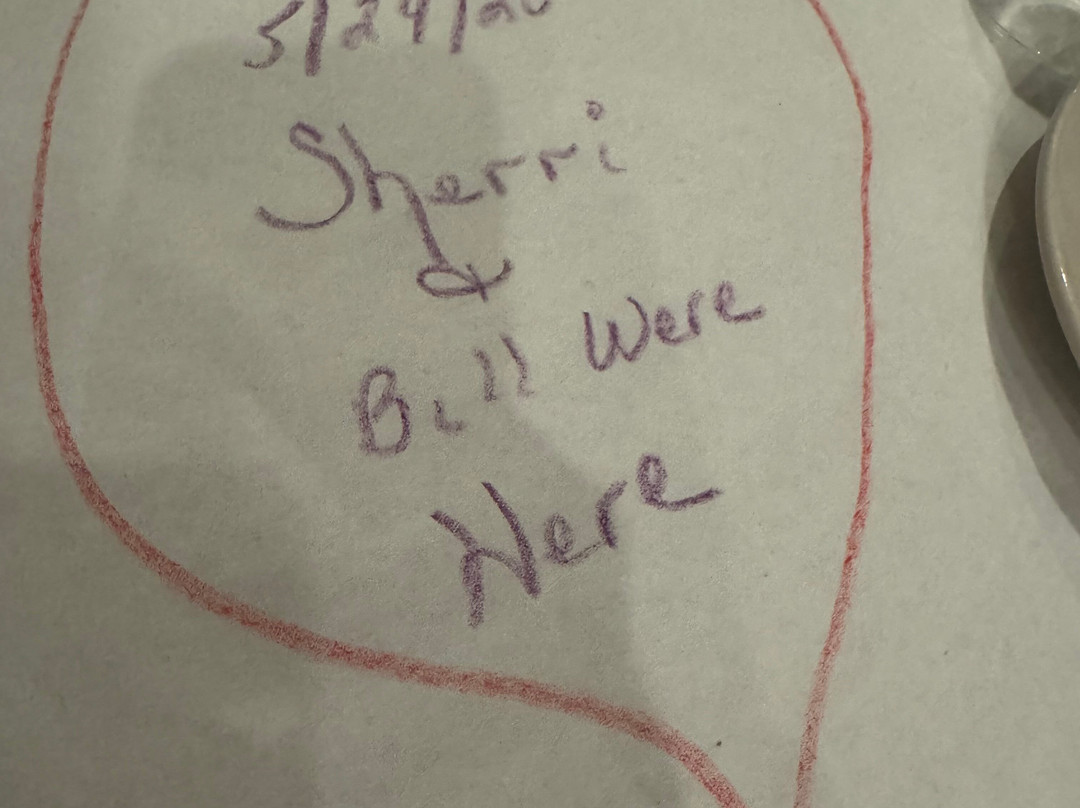 5/24/20
Sherri
&
Bill Were
Here